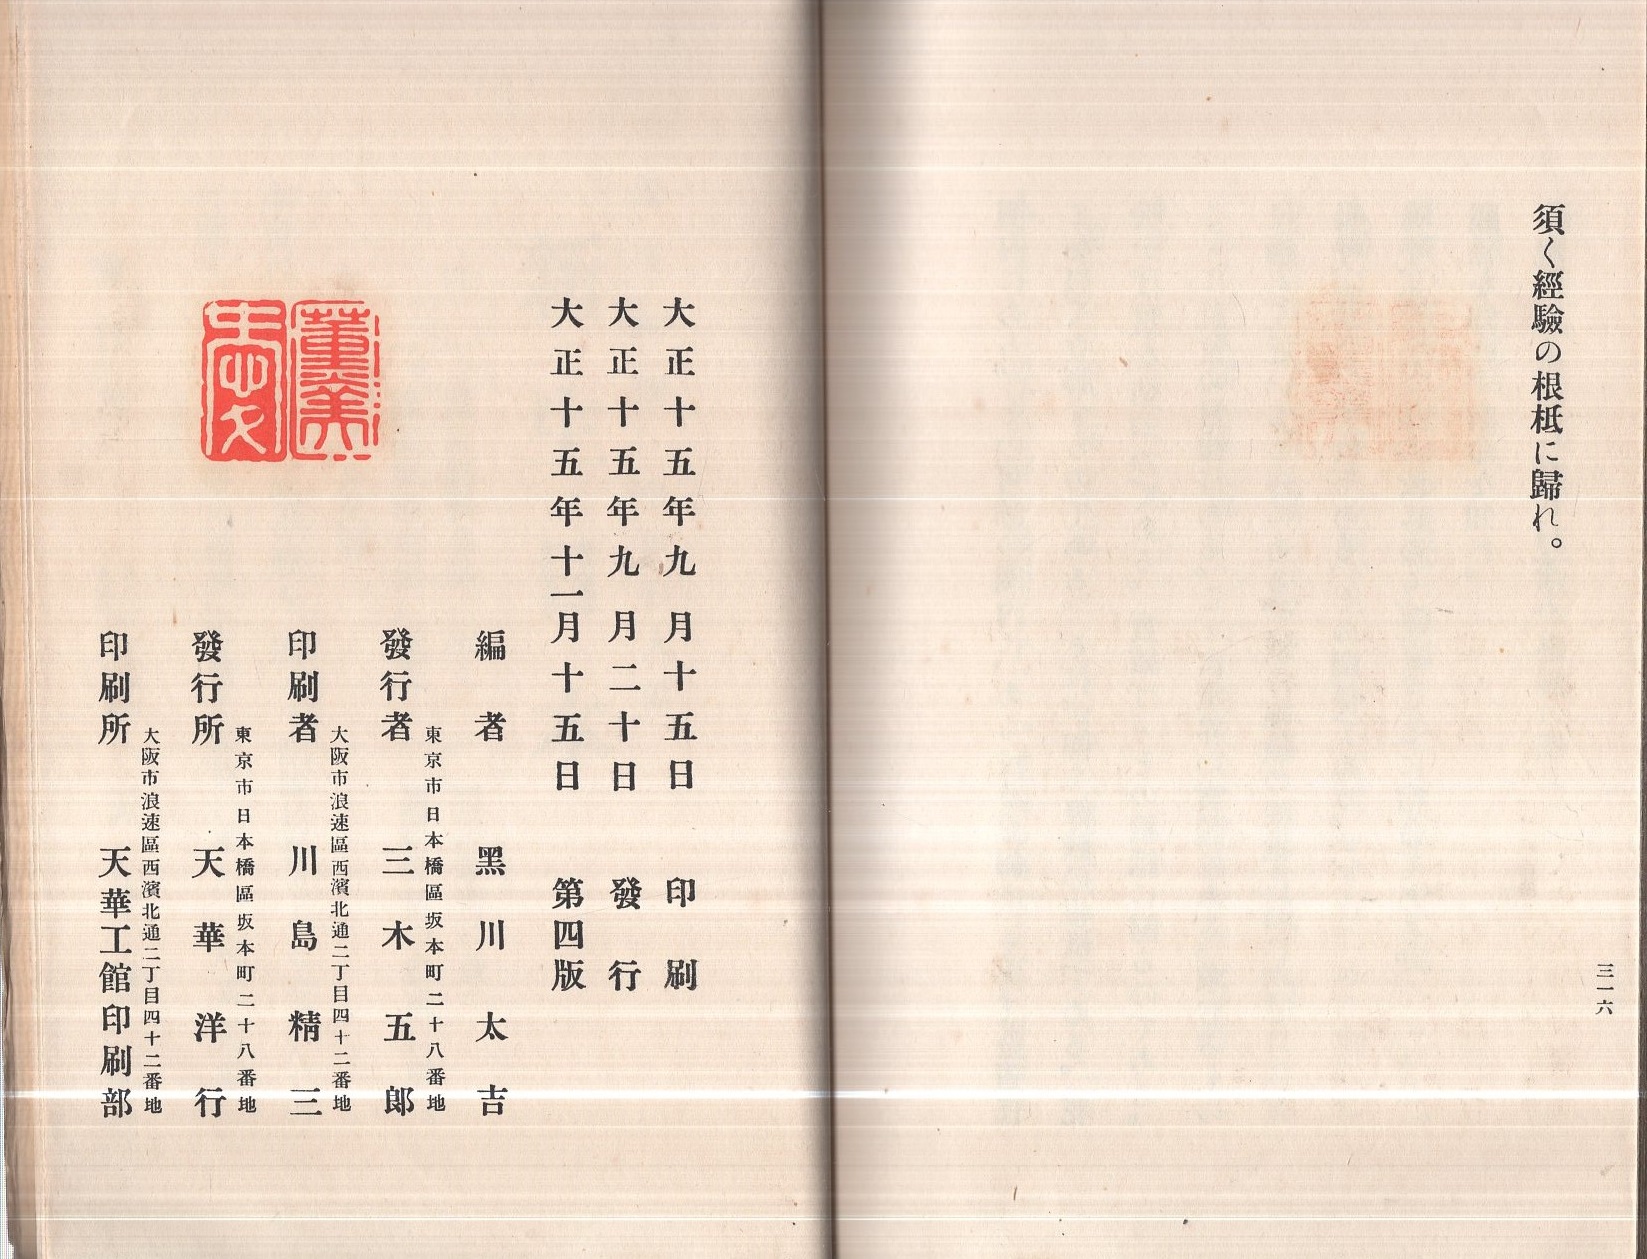 須く經驗の根柢に歸れ。
三一六
大正十五年九月十五日 印刷
大正十五年九月二十日 發行
大正十五年十一月十五日 第四版
編者 黑川太吉
東京市日本橋區坂本町二十八番地
發行者 三木五郎
大阪市浪速區西濱北通二丁目四十二番地
印刷者 川島精三
東京市日本橋區坂本町二十八番地
發行所 天華洋行
大阪市浪速區西濱北通二丁目四十二番地
印刷所 天華工館印刷部